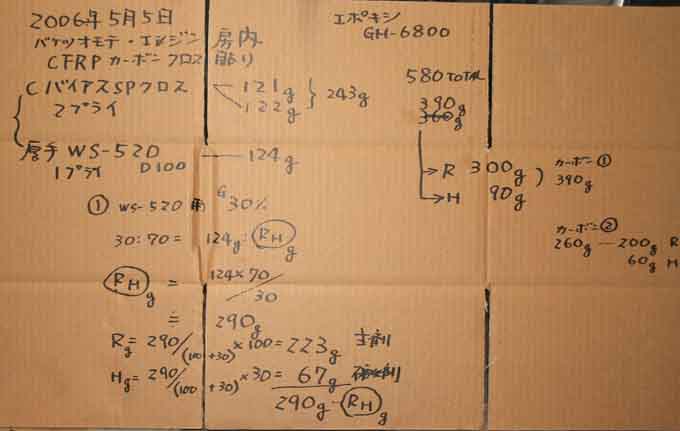 2006年5月5日
バケツオモテ・エンジン房内
CFRP カーボンクロス貼り
CバイアスSPクロス 121g
2プライ 122g } 243g
厚手 WS-520 — 124g
1プライ D100
① WS-520 G 30%
30:70 = 124g : RH g
RH g = 124×70/30
≒ 290g
Rg = 290/(100+30) ×100 = 223g 主剤
Hg = 290/(100+30) ×30 = 67g
290g - RH g
エポキシ
GH-6800
580 TOTAL
390g
360g
→ R 300g
→ H 90g
カーボン①
390g
カーボン②
260g — 200g R
60g H